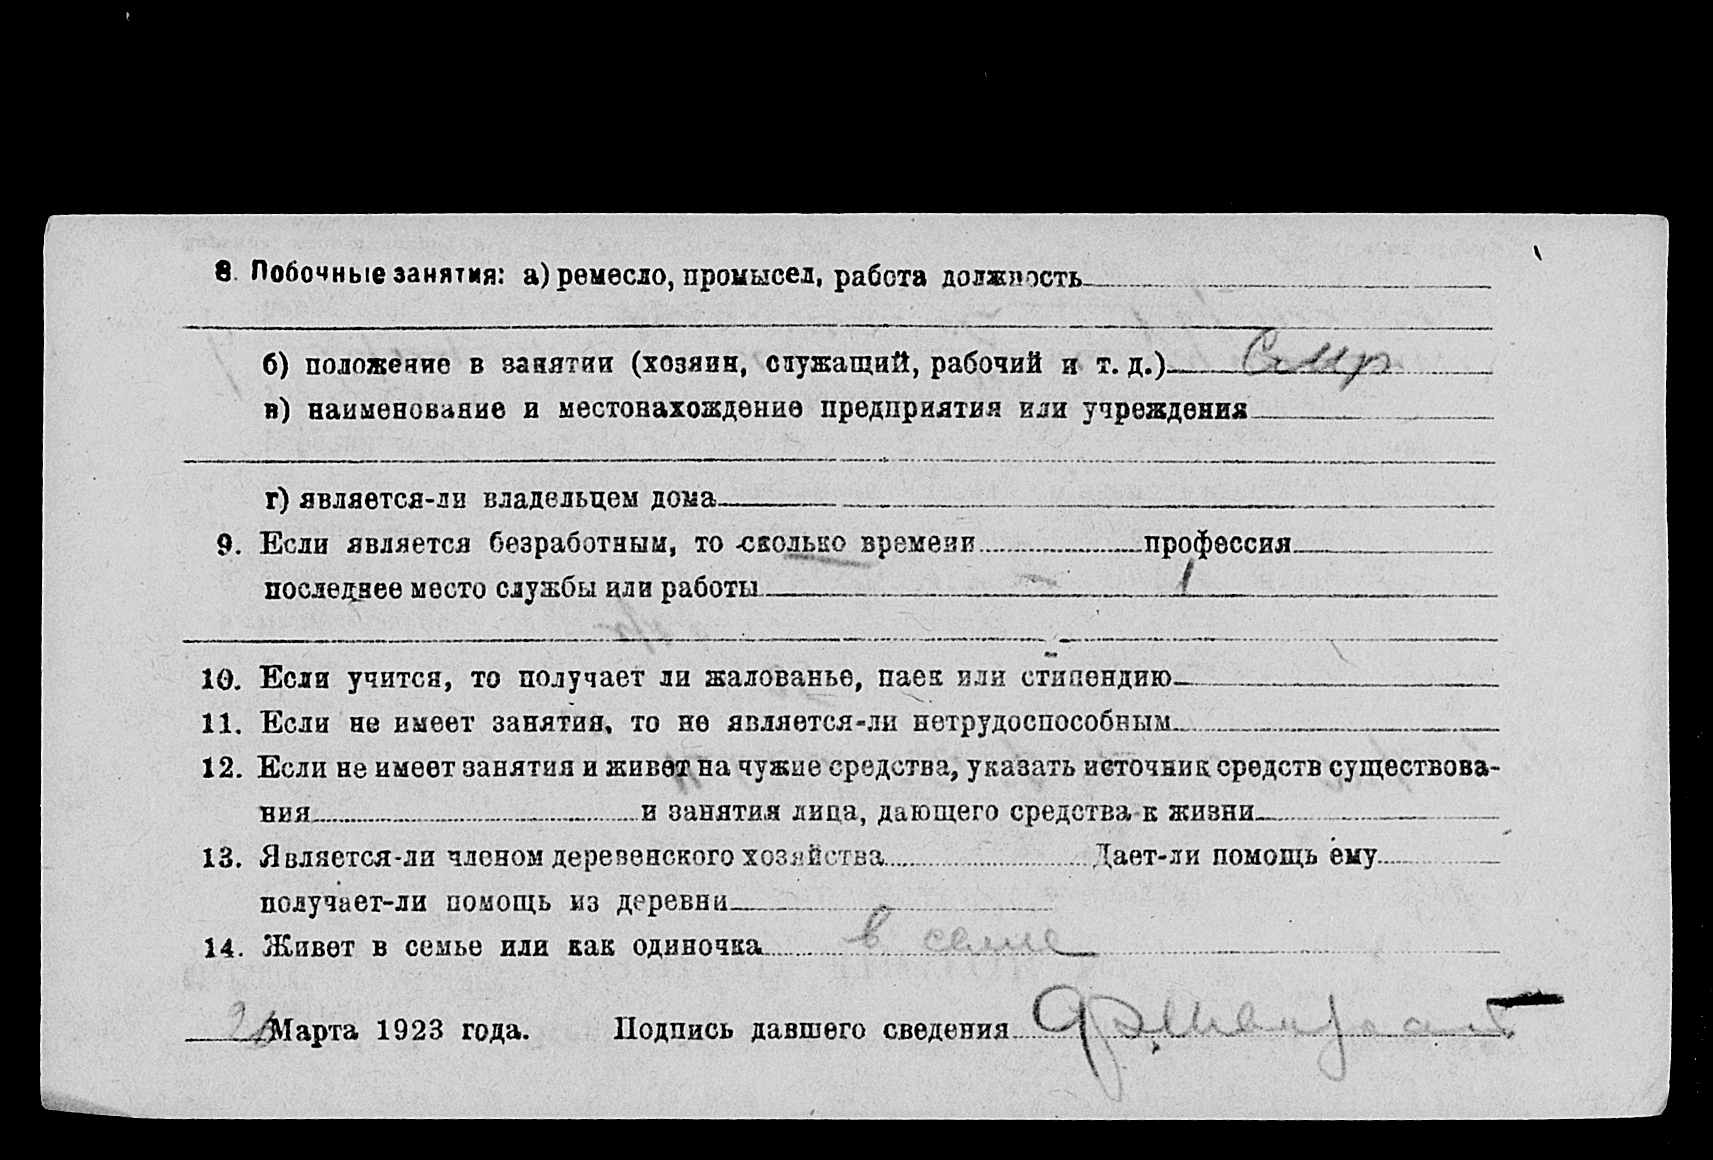 8. Побочные занятия: а) ремесло, промысел, работа должность
б) положение в занятии (хозяин, служащий, рабочий и т. д.)
в) наименование и местонахождение предприятия или учреждения
г) является-ли владельцем дома
9. Если является безработным, то сколько времени профессия
последнее место службы или работы
10. Если учится, то получает ли жалованье, паек или стипендию
11. Если не имеет занятия, то не является-ли нетрудоспособным
12. Если не имеет занятия и живет на чужие средства, указать источник средств существова-
ния и занятия лица, дающего средства к жизни
13. Является-ли членом деревенского хозяйства Дает-ли помощь ему
получает-ли помощь из деревни
14. Живет в семье или как одиночка в семье
Марта 1923 года. Подпись давшего сведения